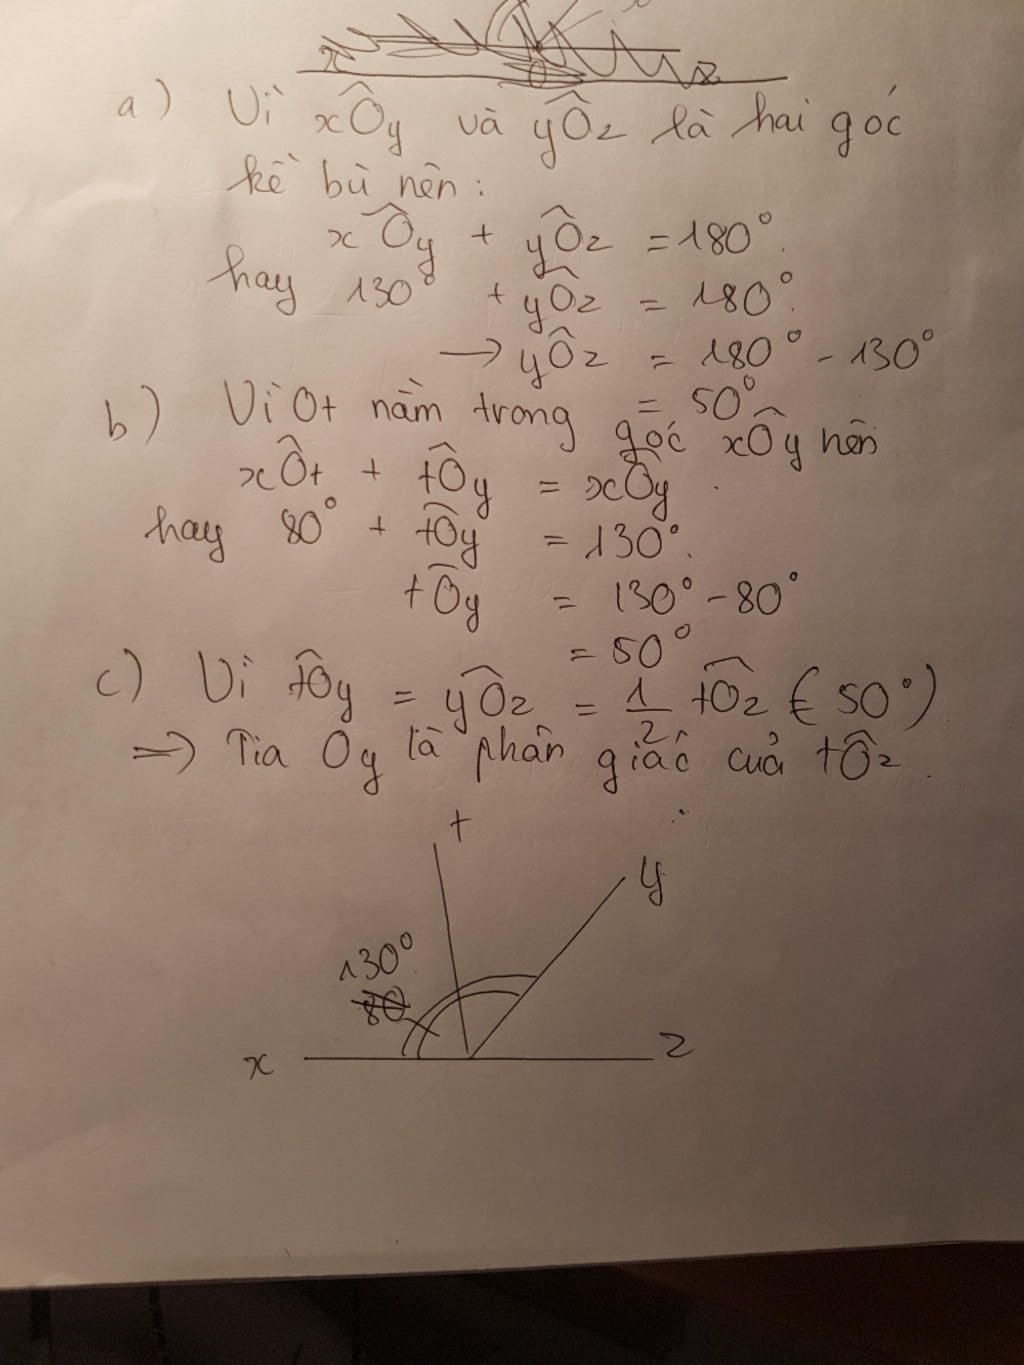 x z
a) Vì xÔy và yÔz là hai góc
kề bù nên:
xÔy + yÔz = 180°.
hay 130° + yÔz = 180°.
→ yÔz = 180° - 130°
= 50°
b) Vì Ot nằm trong góc xÔy nên
xÔt + tÔy = xÔy.
hay 80° + tÔy = 130°.
tÔy = 130° - 80°
= 50°
c) Vì tÔy = yÔz = 1/2 tÔz (= 50°)
=> Tia Oy là phân giác của tÔz.
t
y
130°
80
x z